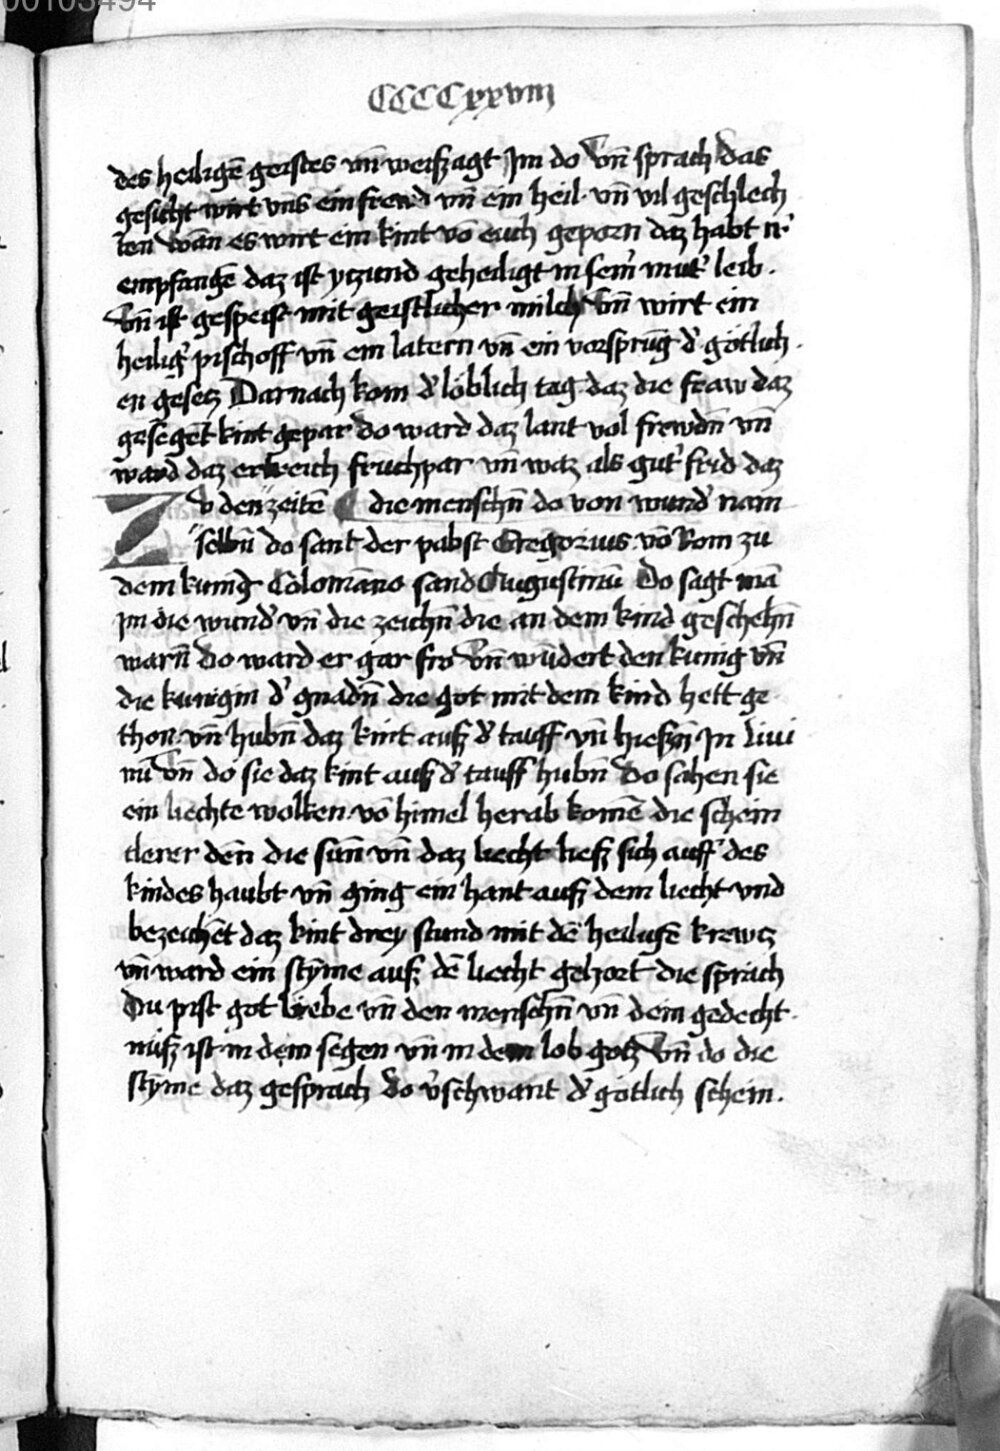 00103494
CCCCxxviii
des heiligē geistes vn̄ weiszagt Im do Vn̄ sprach das
gesicht wirt vns ein frewd vn̄ ein heil · vn̄ vil geschlech
ten wān es wirt ein kint vō euch geporn daz habt ir
empfangē daz ist yczund geheiligt in seinˀ mutˀ leib .
Vn̄ ist gespeist mit geistlicher milch Vn̄ wirt ein
heiligˀ pischoff vn̄ ein latern vn̄ ein vorsprūg dˀ götlich
en gesecz Darnach kom dˀ löblich tag daz die fraw daz
gesegēt kint gepar do ward daz lant vol frewdn̄ vn̄
ward daz ertreich fruchpar vn̄ waz als gutˀ frid daz
Zv den zeitē die menschn̄ do von wundˀ nam
selbn̄ do sant der pabst Gregorius vō Rom zu
dem kunig Colomāno sand Augustinū Do sagt mā
Im die wundˀ vn̄ die zeichn̄ die an dem kind geschehn̄
warn̄ do ward er gar fro Vn̄ wūdert den kunig vn̄
die kunigin dˀ gnadn̄ die got mit dem kind hett ge
thon vn̄ hubn̄ daz kint ausz dˀ tauff vn̄ hieszn̄ In Liui
nū Vn̄ do sie daz kint ausz dˀ tauff hubn̄ do sahen sie
ein liechte wolken vō himel herab komē die schein
clerer den̄ die sūn vn̄ daz liecht liesz sich auff des
kindes haubt vn̄ ging ein hant ausz dem liecht vnd
bezeichēt daz kint drey stund mit dē heiligē krewcz
vn̄ ward ein stȳme ausz dē liecht gehort die sprach
Du pist got liebe vn̄ den menschn̄ vn̄ dein gedecht
nüsz ist in dem segen vn̄ in dem lob gotz Vn̄ do die
stȳme daz gesprach do vˀschwant dˀ götlich schein .